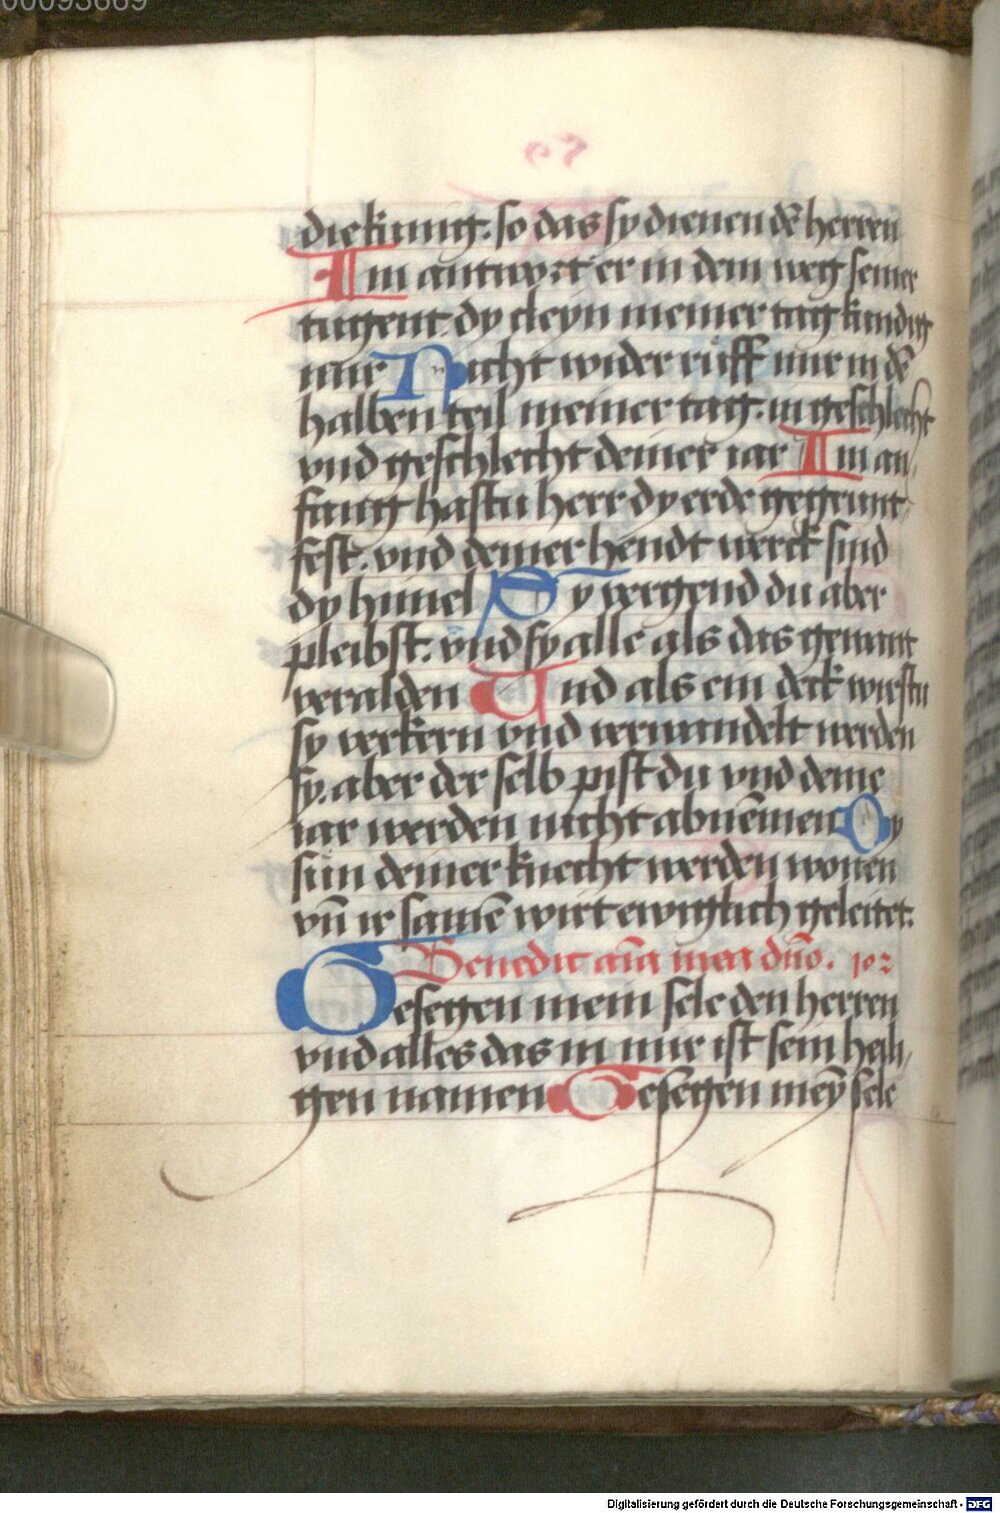 00093669
die kunig. so das sy dienen dē herren
Im antwort er in dem weg seiner
tugent. dy cleyn meiner tag kundig
mir Nicht wider rüff mir in dē
halben teil meiner tag. in geschlecht
vnd geschlecht deiner iar Im an,
fang hastu herr dy erde gegrunt,
fest. vnd deiner hendt werck sind
dy himel Sy vergend du aber
pleibst. vnd sy alle als das gewant
veralden Und als ein deck wirstu
sy verkern vnd verwandelt werden
sy. aber der selb pist du vnd deine
iar werden nicht abnēmen Dy
sün deiner knecht werden wonen
vn̄ ir samē wirt ewiglich geleitet.
Benedic aīa mea dn̄o. 102
Gesegen mein sele den herren
vnd alles das in mir ist sein heili,
gen namen Gesegen mey̅ sele
Digitalisierung gefördert durch die Deutsche Forschungsgemeinschaft - DFG